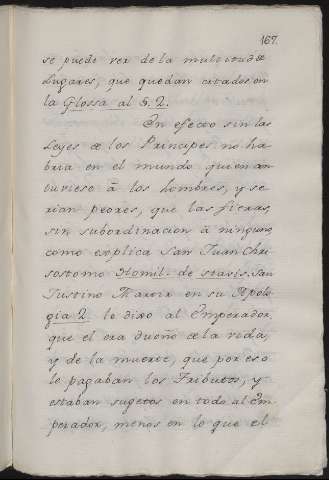 167.
se puede ver de la multitud de
Lugares, que quedan citados en
la Glossa al §. 2.
En efecto sin las
Leyes de los Principes no ha
bria en el mundo quien con
tuviese â los hombres, y se
rian peores, que las fieras,
sin subordinacion â ninguno,
como explica San Juan Chri
sostomo Homil. de statis. San
Justino Martir en su Apolo
gia 2. lo dixo al Emperador,
que el era dueño de la vida,
y de la muerte, que por eso
le pagaban los Tributos, y
estaban sugetos en todo al Em
perador, menos en lo que el